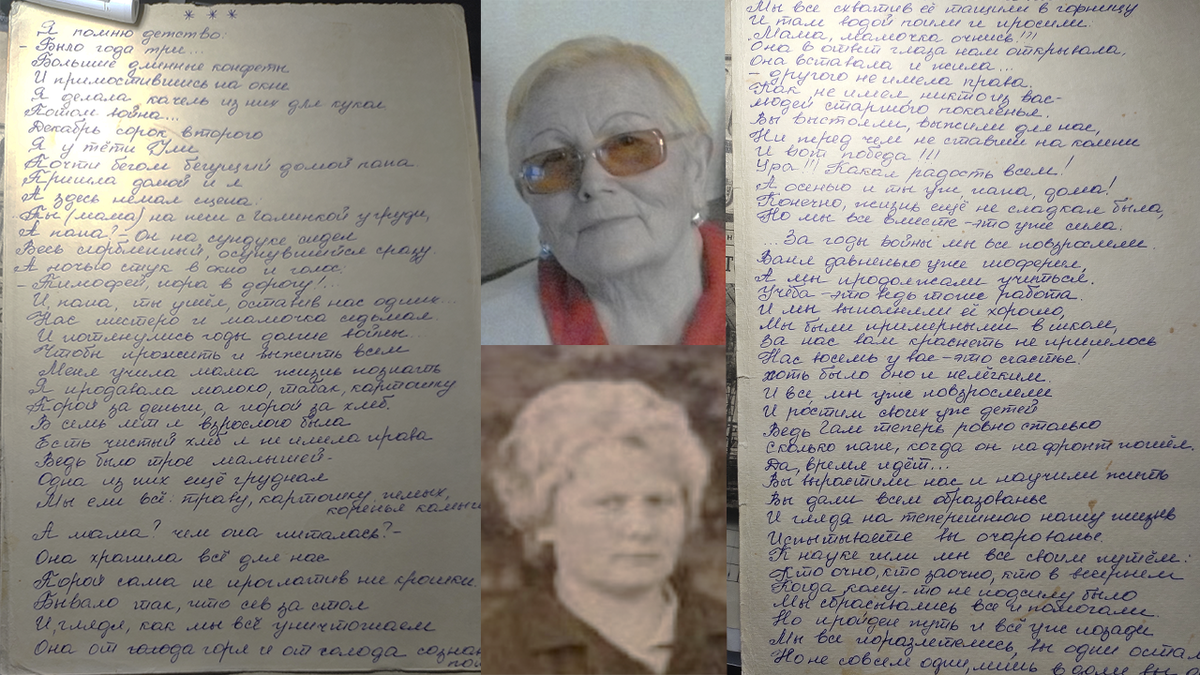 * * *
Я помню детство:
- Было года три...
Большие длинные конфеты
И примостившись на окне
Я делала качель из них для кукол
Потом война...
Декабрь сорок второго
Я у тёти Ули
Почти бегом бегущий домой папа.
Пришла домой и я
А здесь немая сцена:
Ты (мама) на печи с Галинкой у груди,
А папа? - Он на сундуке сидел
Весь сгорбленный, осунувшийся сразу.
А ночью стук в окно и голос:
- Тимофей, пора в дорогу!...
И, папа, ты ушёл, оставив нас одних...
Нас шестеро и мамочка седьмая.
И потянулись годы долгие войны...
Чтобы прожить и выжить всем
Меня учила мама жизнь познать
Я продавала молоко, табак, картошку
Порой за деньги, а порой за хлеб.
В семь лет я взрослого была
Есть чистый хлеб я не имела права
Ведь было трое малышей-
Одна из них ещё грудная
Мы ели всё: траву, картошку, жмых,
коренья камыш
А мама? чем она питалась?-
Она хранила всё для нас
Порой сама не проглатив ни крошки.
Бывало так, что сев за стол
И, глядя, как мы всё уничтожаем
Она от голода горя и от холода сознан
Мы все схватив её тащили в горницу
И там водой поили и просили:
Мама, мамочка очнись!!!
Она в ответ глаза нам открывала,
Она вставала и жила...
- другого не имела права.
Как не имел никто из вас-
людей старшого поколенья.
Вы выстояли, выжили для нас,
Ни перед чем не ставши на колени
И вот победа!!!
Ура!!! Какая радость всем!
А осенью и ты уж папа, дома!
Конечно, жизнь ещё не сладкая была,
Но мы все вместе-это уже сила.
...За годы войны мы все повзрослели.
Ваня давненько уже шоферил,
А мы продолжали учиться.
Учёба-это ведь тоже работа.
И мы выполняли её хорошо,
Мы были примерными в школе,
За нас вам краснеть не пришлось
Нас восемь у вас-это счастье!
хоть было оно и нелёгким.
И все мы уже повзрослели
И ростим своих уж детей
Ведь Гале теперь ровно столько
сколько папе, когда он на фронт пошёл.
Да, время идёт...
Вы вырастили нас и научили жить
Вы дали всем образованье
И глядя на теперешнюю нашу жизнь
Испытываете вы очарованье.
К науке шли мы все своим путём:
Кто очно, кто заочно, кто в вечернем
Когда кому-то не подсилу было
Мы сбрасывались все и помогали.
Но пройден путь и всё уж позади
Мы все поразлетелись, вы одни остал
Но не совсем одни, лишь в доме вы